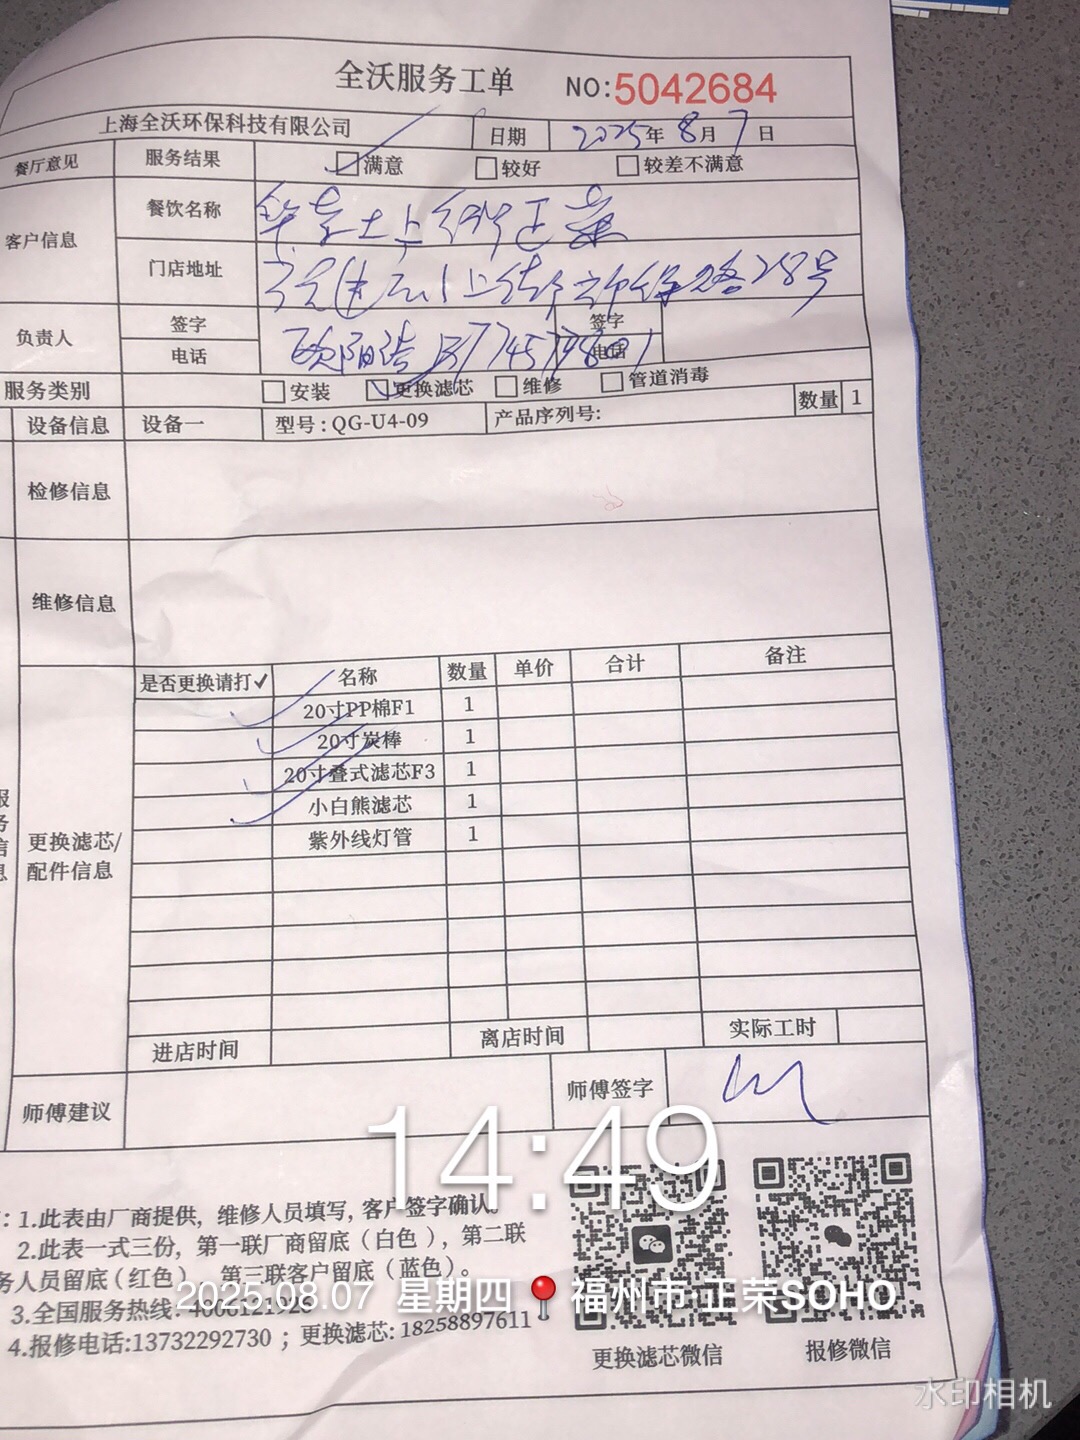 全沃服务工单 NO:5042684
上海全沃环保科技有限公司 日期 2025年 8月 7日
餐厅意见 服务结果 满意 较好 较差不满意
客户信息
餐饮名称
门店地址 28号
负责人 签字 签字
电话 电话
服务类别 安装 更换滤芯 维修 管道消毒
设备信息 设备一 型号:QG-U4-09 产品序列号: 数量 1
检修信息
维修信息
是否更换请打✓ 名称 数量 单价 合计 备注
20寸PP棉F1 1
20寸炭棒 1
20寸叠式滤芯F3 1
小白熊滤芯 1
紫外线灯管 1
更换滤芯/
配件信息
进店时间 离店时间 实际工时
师傅建议 师傅签字
14:49
1.此表由厂商提供, 维修人员填写, 客户签字确认。
2.此表一式三份, 第一联厂商留底(白色), 第二联
务人员留底(红色), 第三联客户留底(蓝色)。
2025.08.07 星期四 福州市·正荣SOHO
3.全国服务热线:
4.报修电话:13732292730 ; 更换滤芯: 18258897611
更换滤芯微信 报修微信
水印相机